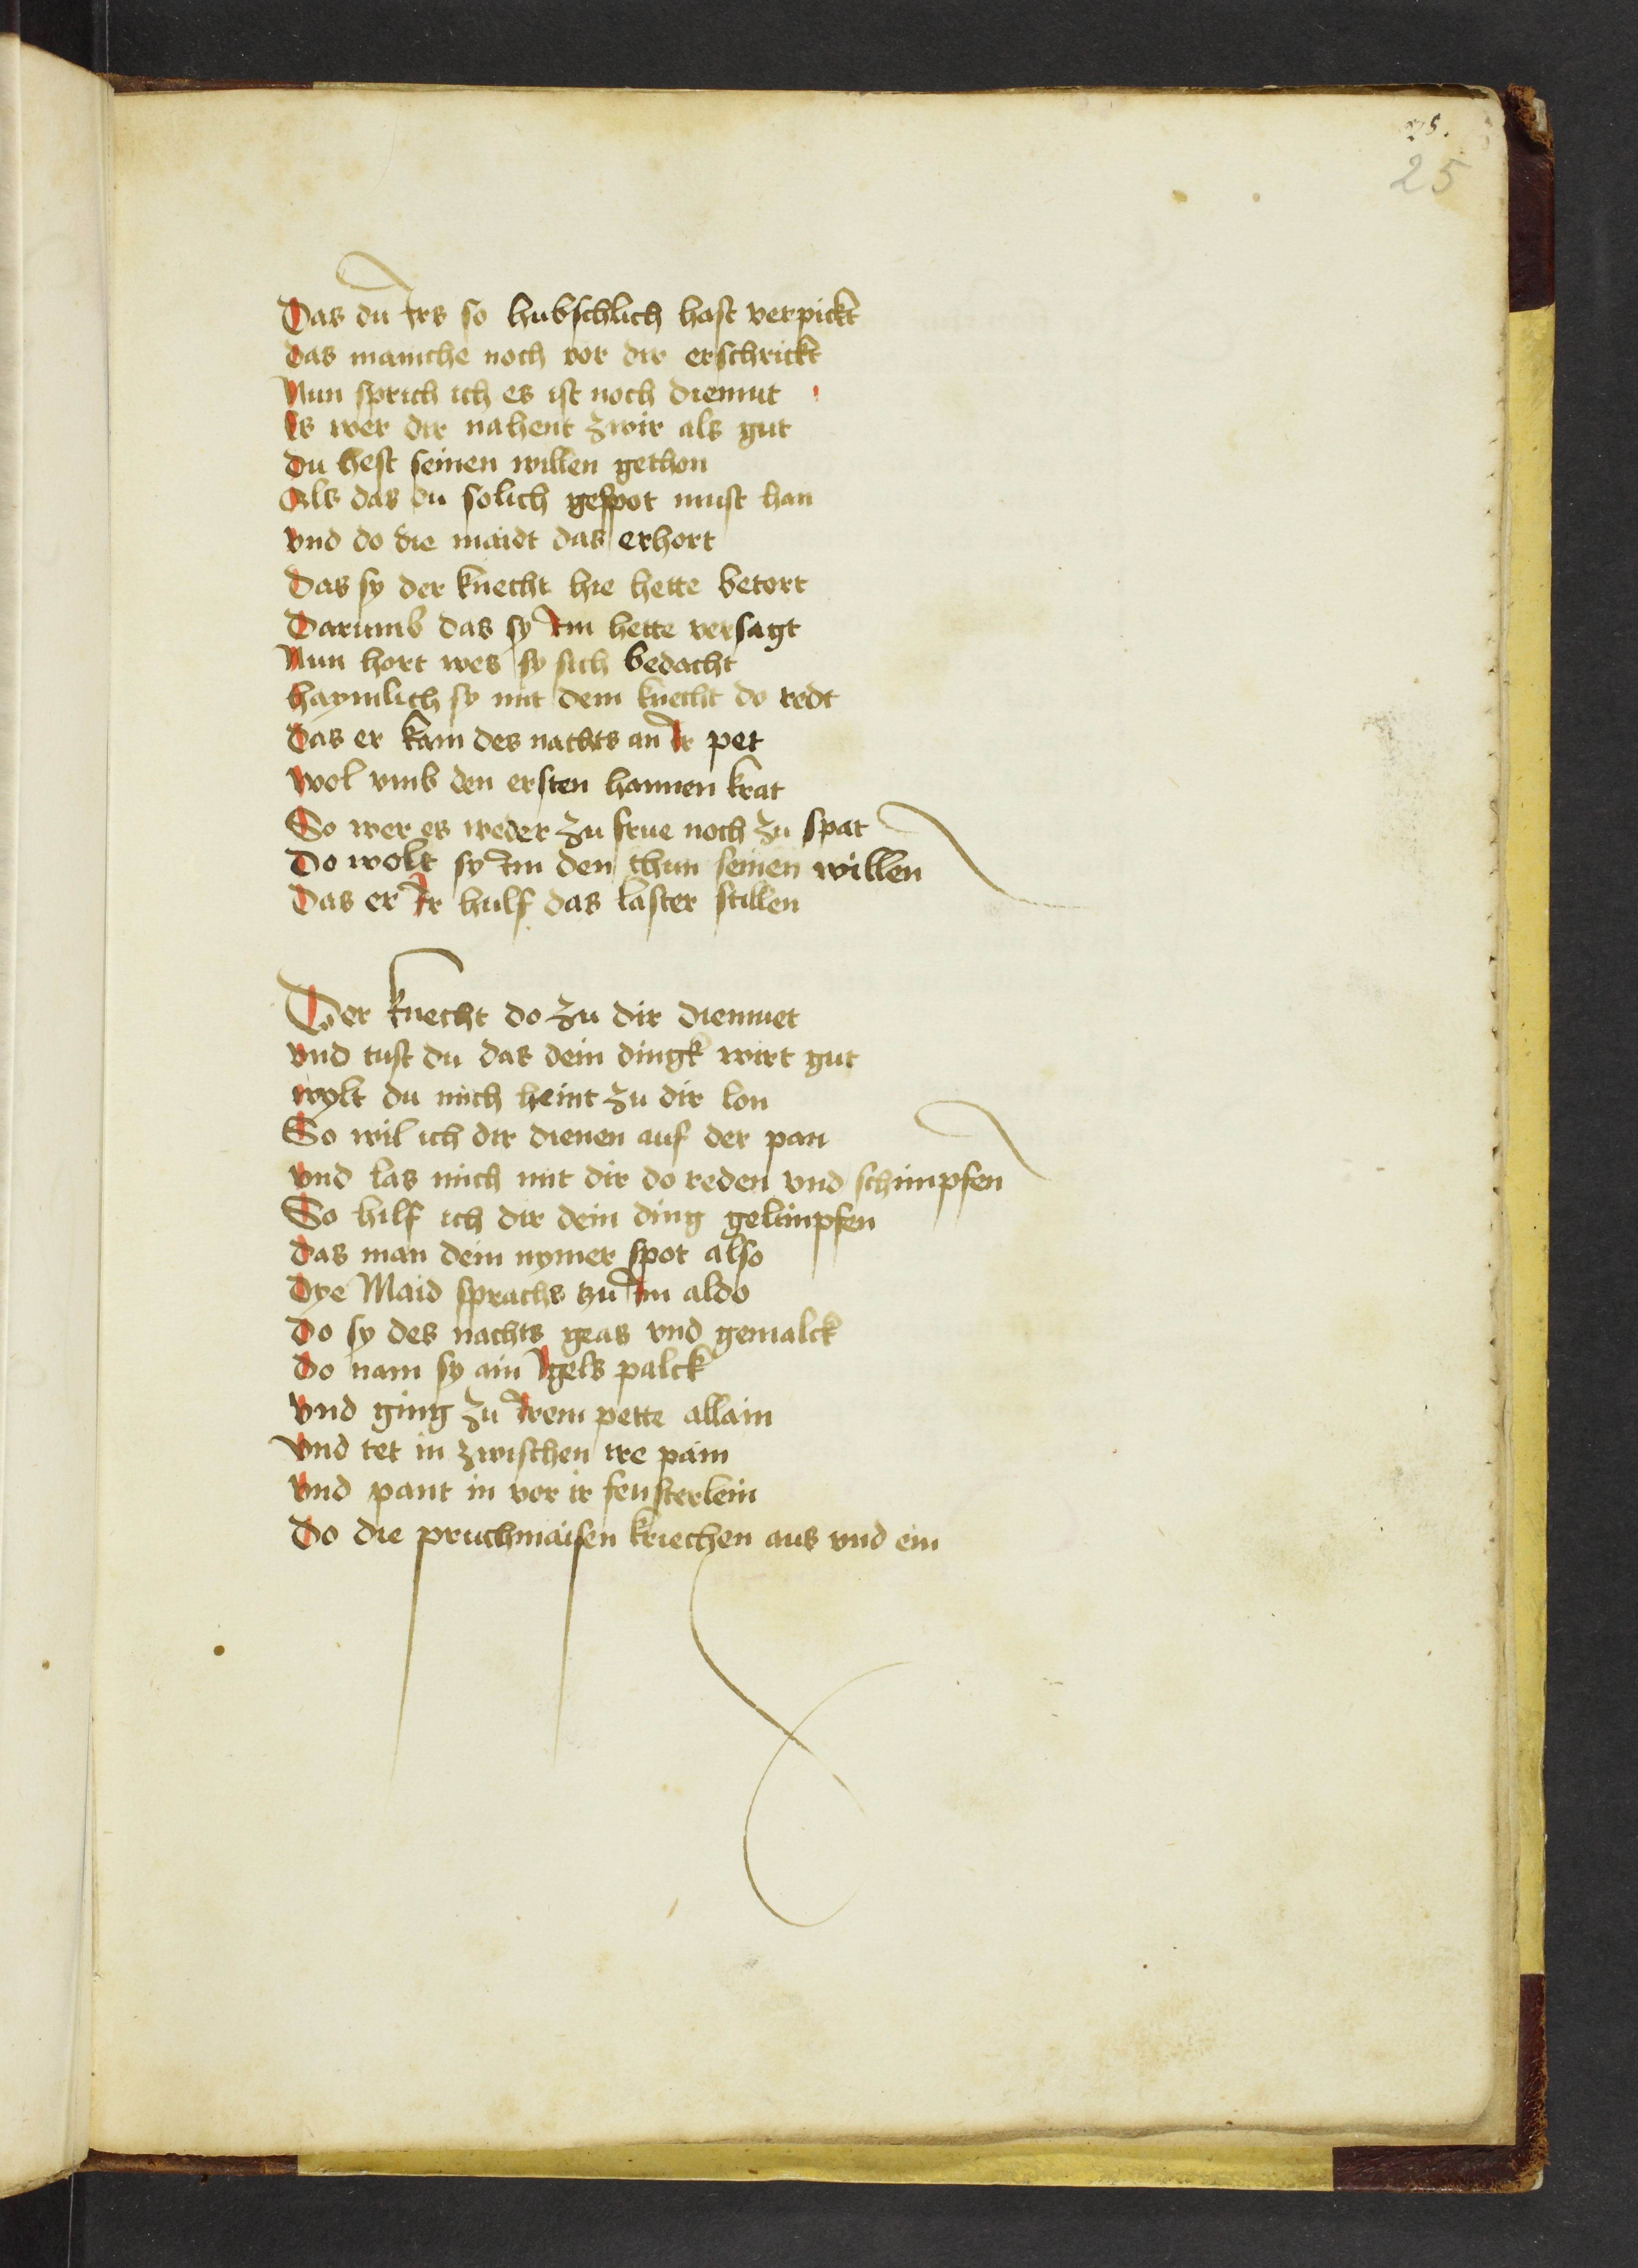 25.
25
Das du Irs so hubschlich hast verpickt
das maniche noch vor dir erschrickt
Nun sprich ich es ist noch diemut
Es wer dir nahent zwir als gut
du hest seinen willen gethon
Als das du solich gespot must han
vnd do die maidt das erhort
Das sy der knecht hie hette betort
Darumb das sy Im hette versagt
Nun hort wes sy sich bedacht
haymlich sy mit dem knecht do redt
das er kam des nachts an Ir pet
wol vmb den ersten hannen krat
So wer es weder zu frue noch zu spat
Do wolt sy Im den thun seinen willen
Das er Ir hulf das laster stillen
Der knecht do zu dir diemuet
vnd tust du das dein dingk wirt gut
wylt du mich heint zu dir lon
So wil ich dir dienen auf der pan
vnd las mich mit dir do reden vnd schimpfen
So hilf ich dir dein ding gelimpfen
das man dein nymer spot also
dye Maid sprachs tzu Im aldo
do sy des nachts geas vnd gemalck
do nam sy ain Igels palck
vnd ging zu Irem pette allain
vnd tet in zwischen ire pain
vnd pant in vor ir fensterlein
do die pruchmaisen kriechen aus vnd ein